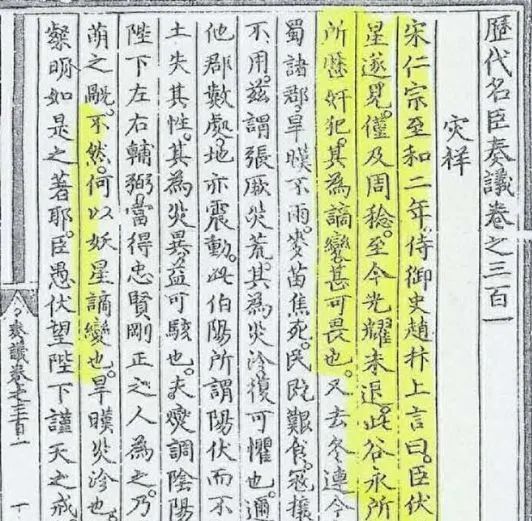 歷代名臣奏議卷之三百一
灾祥
宋仁宗至和二年。侍御史趙抃上言曰。臣伏
星遂見。僅及周稔。至今光耀未退。此谷永所
所歷奸犯。其為謫變甚可畏也。又去冬連今
蜀諸郡。旱暵不雨。麥苗焦死。民既艱食。寇攘
不用。茲謂張厥災荒。其為災沴復可懼也。邇
他郡數處。地亦震動。此伯陽所謂陽伏而不
土失其性。其為災異。益可駭也。夫燮調陰陽
陛下左右輔弼。當得忠賢剛正之人為之。乃
萠之 。不然。何以妖星謫變也。旱暵災沴也。
粲明如是之著耶。臣愚伏望陛下謹天之戒。
奏議卷之三百一